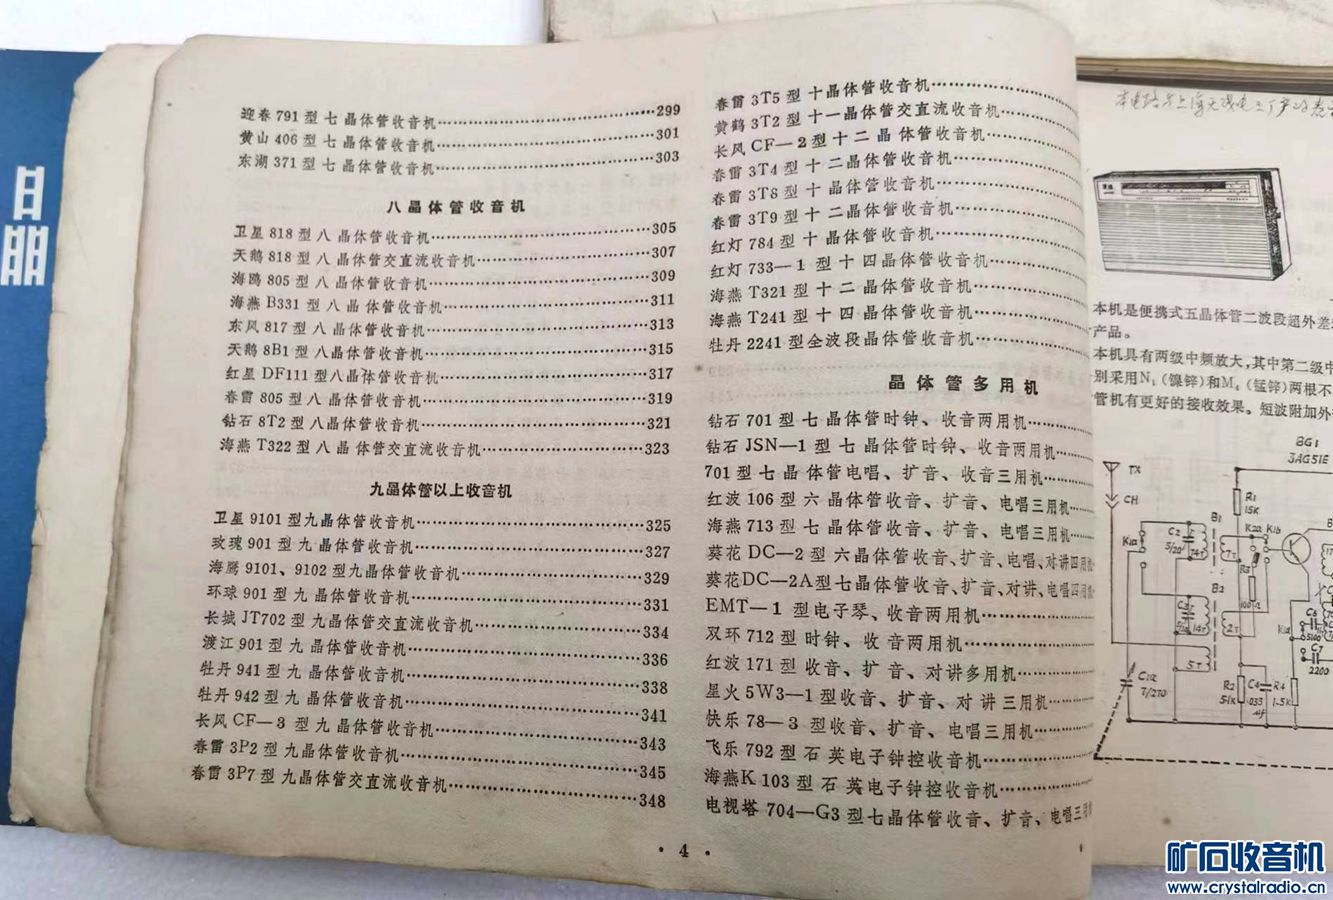 迎春791型七晶体管收音机……299
黄山406型七晶体管收音机……301
东湖371型七晶体管收音机……303
八晶体管收音机
卫星818型八晶体管收音机……305
天鹅818型八晶体管交直流收音机……307
海鸥805型八晶体管收音机……309
海燕B331型八晶体管收音机……311
东风817型八晶体管收音机……313
天鹅8B1型八晶体管收音机……315
红星DF111型八晶体管收音机……317
春雷805型八晶体管收音机……319
钻石8T2型八晶体管收音机……321
海燕T322型八晶体管交直流收音机……323
九晶体管以上收音机
卫星9101型九晶体管收音机……325
玫瑰901型九晶体管收音机……327
海鹰9101、9102型九晶体管收音机……329
环球901型九晶体管收音机……331
长城JT702型九晶体管交直流收音机……334
渡江901型九晶体管收音机……336
牡丹941型九晶体管收音机……338
牡丹942型九晶体管收音机……341
长风CF—3型九晶体管收音机……343
春雷3P2型九晶体管收音机……345
春雷3P7型九晶体管交直流收音机……348
春雷3T5型十晶体管收音机……
黄鹤3T2型十一晶体管交直流收音机……
长风CF—2型十二晶体管收音机……
春雷3T4型十二晶体管收音机……
春雷3T8型十晶体管收音机……
春雷3T9型十二晶体管收音机……
红灯784型十晶体管收音机……
红灯733—1型十四晶体管收音机……
海燕T321型十二晶体管收音机……
海燕T241型十四晶体管收音机……
牡丹2241型全波段晶体管收音机……
晶体管多用机
钻石701型七晶体管时钟、收音两用机……
钻石JSN—1型七晶体管时钟、收音两用机……
701型七晶体管电唱、扩音、收音三用机……
红波106型六晶体管收音、扩音、电唱三用机……
海燕713型七晶体管收音、扩音、电唱三用机……
葵花DC—2型六晶体管收音、扩音、电唱、对讲四用机
葵花DC—2A型七晶体管收音、扩音、对讲、电唱四用机
EMT—1型电子琴、收音两用机……
双环712型时钟、收音两用机……
红波171型收音、扩音、对讲多用机……
星火5W3—1型收音、扩音、对讲三用机……
快乐78—3型收音、扩音、电唱三用机……
飞乐792型石英电子钟控收音机……
海燕K103型石英电子钟控收音机……
电视塔704—G3型七晶体管收音、扩音、电唱三用
·4·
本机是便携式五晶体管二波段超外差
产品。
本机具有两级中频放大,其中第二级中
别采用N₁(镍锌)和M₄(锰锌)两根不
管机有更好的接收效果。短波附加外
BG1
3AG51E
TX
CH
R1
15K
B1
K2a K1b
K1a
C2
5/20
74T
7T
R3
B2
14T
2T
5T
C1a
7/270
R2
51K
C4
.033
μf
R4
1.5K
C6
5100
C7
2200
矿石收音机
www.crystalradio.cn